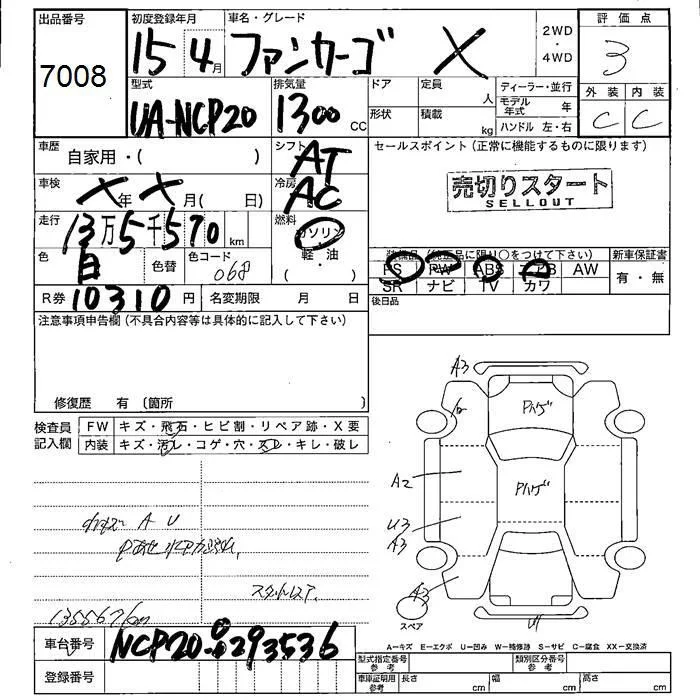 出品番号
7008
初度登録年月
15 4月
車名・グレード
ファンカーゴ X
2WD
・
4WD
評価点
3
外装 内装
C C
型式
UA-NCP20
排気量
1300 CC
ドア
定員 人
形状
積載 kg
ディーラー・並行
モデル年式 年
ハンドル 左・右
車歴
自家用・( )
シフト
AT
車検
X年 X月( 日)
冷房
AC
セールスポイント (正常に機能するものに限ります)
売切りスタート
SELLOUT
走行
13万5千570 km
燃料
ガソリン
軽・油
色
白
色替
色コード
068
PS PW ABS エアB AW
SR ナビ TV カワ
新車保証書
有・無
R券 10310円
名変期限 月 日
後日品
注意事項申告欄 (不具合内容等は具体的に記入して下さい)
修復歴 有 〔箇所 〕
検査員記入欄
FW キズ・飛石・ヒビ割・リペア跡・X要
内装 キズ・汚レ・コゲ・穴・スレ・キレ・破レ
A U
135567km
A3
A2
U3
A3
A3
Pハゲ
Pハゲ
スペア
A-キズ E-エクボ U-凹み W-補修跡 S-サビ C-腐食 XX-交換済
車台番号
NCP20-0293536
登録番号
型式指定番号 参考
類別区分番号 参考
車庫証明用 参考
長さ cm
幅 cm
高さ cm